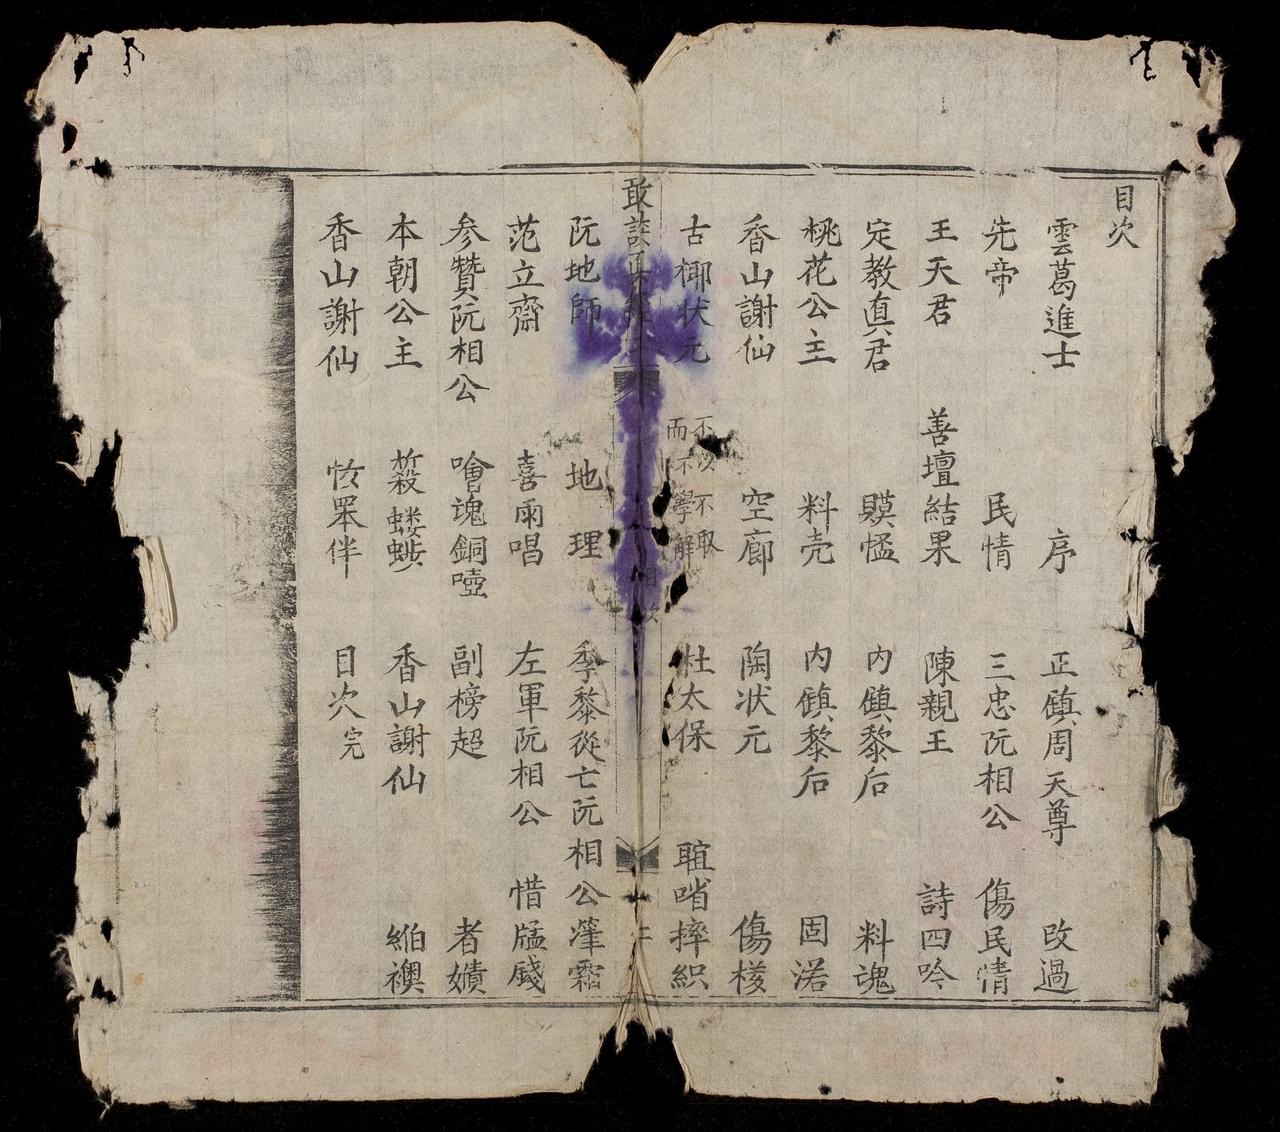 目次
雲葛進士 序 正鎮周天尊 改過
先帝 民情 三忠阮相公 傷民情
王天君 善壇結果 陳親王 詩四吟
定教真君 䫉㦖 內鎮黎后 料魂
桃花公主 料壳 內鎮黎后 固渃
香山謝仙 空廊 陶状元 傷
古椰状元 不以不取 而不學解 杜太保 聇哨捽織
敢 真經
阮地師 地理 季黎從亡阮相公 霜
范立齋 喜雨唱 左軍阮相公 惜
參贊阮相公 噲魂銅 副榜超 者
本朝公主 螻 香山謝仙 襖
香山謝仙 伴 目次完